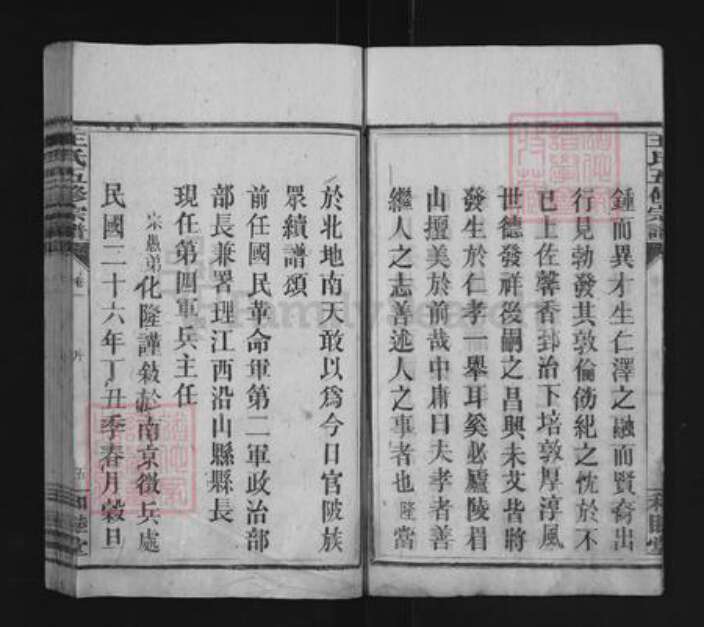 鍾而異才生仁澤之融而賢裔出
行見勃發其敦倫飭紀之忱於不
已上佐馨香郅治下培敦厚淳風
世德發祥後嗣之昌興未艾皆將
發生於仁孝一舉耳奚必廬陵眉
山擅美於前哉中庸曰夫孝者善
繼人之志善述人之事者也隆當
王氏五修宗譜
和睦堂
於北地南天敢以爲今日官陂族
眾續譜頌
前任國民革命軍第二軍政治部
部長兼署理江西沿山縣縣長
現任第四軍兵主任
宗愚弟化隆謹敍於南京徵兵處
民國二十六年丁丑季春月穀旦
王氏五修宗譜
和睦堂
FamilySearch